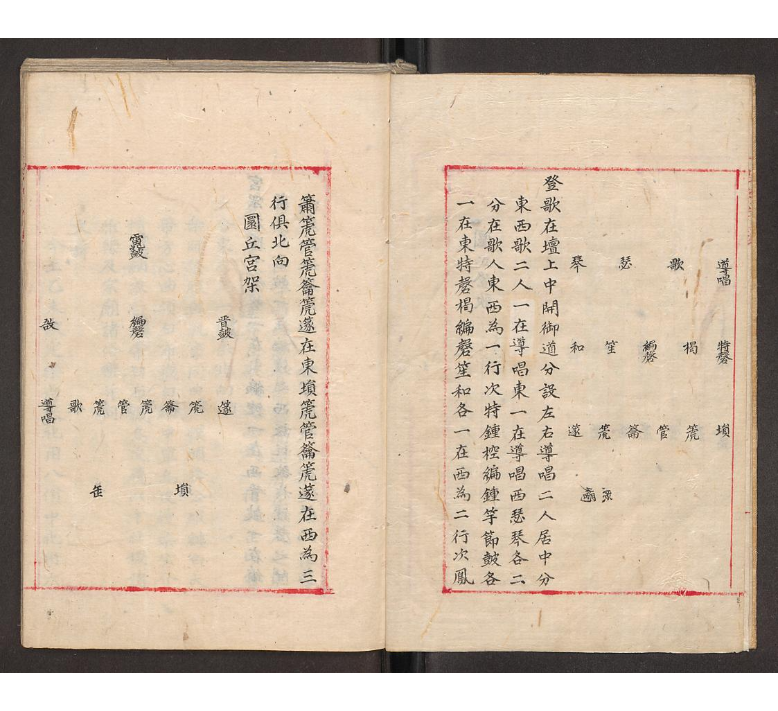 導唱 歌 瑟 琴
特磬 楬 編磬 笙 和
塤 篪 管 籥 篪 篴
登歌在壇上中開御道分設左右導唱二人居中分
東西歌二人一在導唱東一在導唱西瑟琴各二
分在歌人東西為一行次特鍾控編鍾竽節皷各
一在東特磬楬編磬笙和各一在西為二行次鳳
簫篪管篪籥篪篴在東塤篪管籥篪篴在西為三
行俱北向
圜丘宮架
雷皷
晉皷 編磬 敔
篴 篪 籥 篪 管 篪 歌 導唱
塤 缶